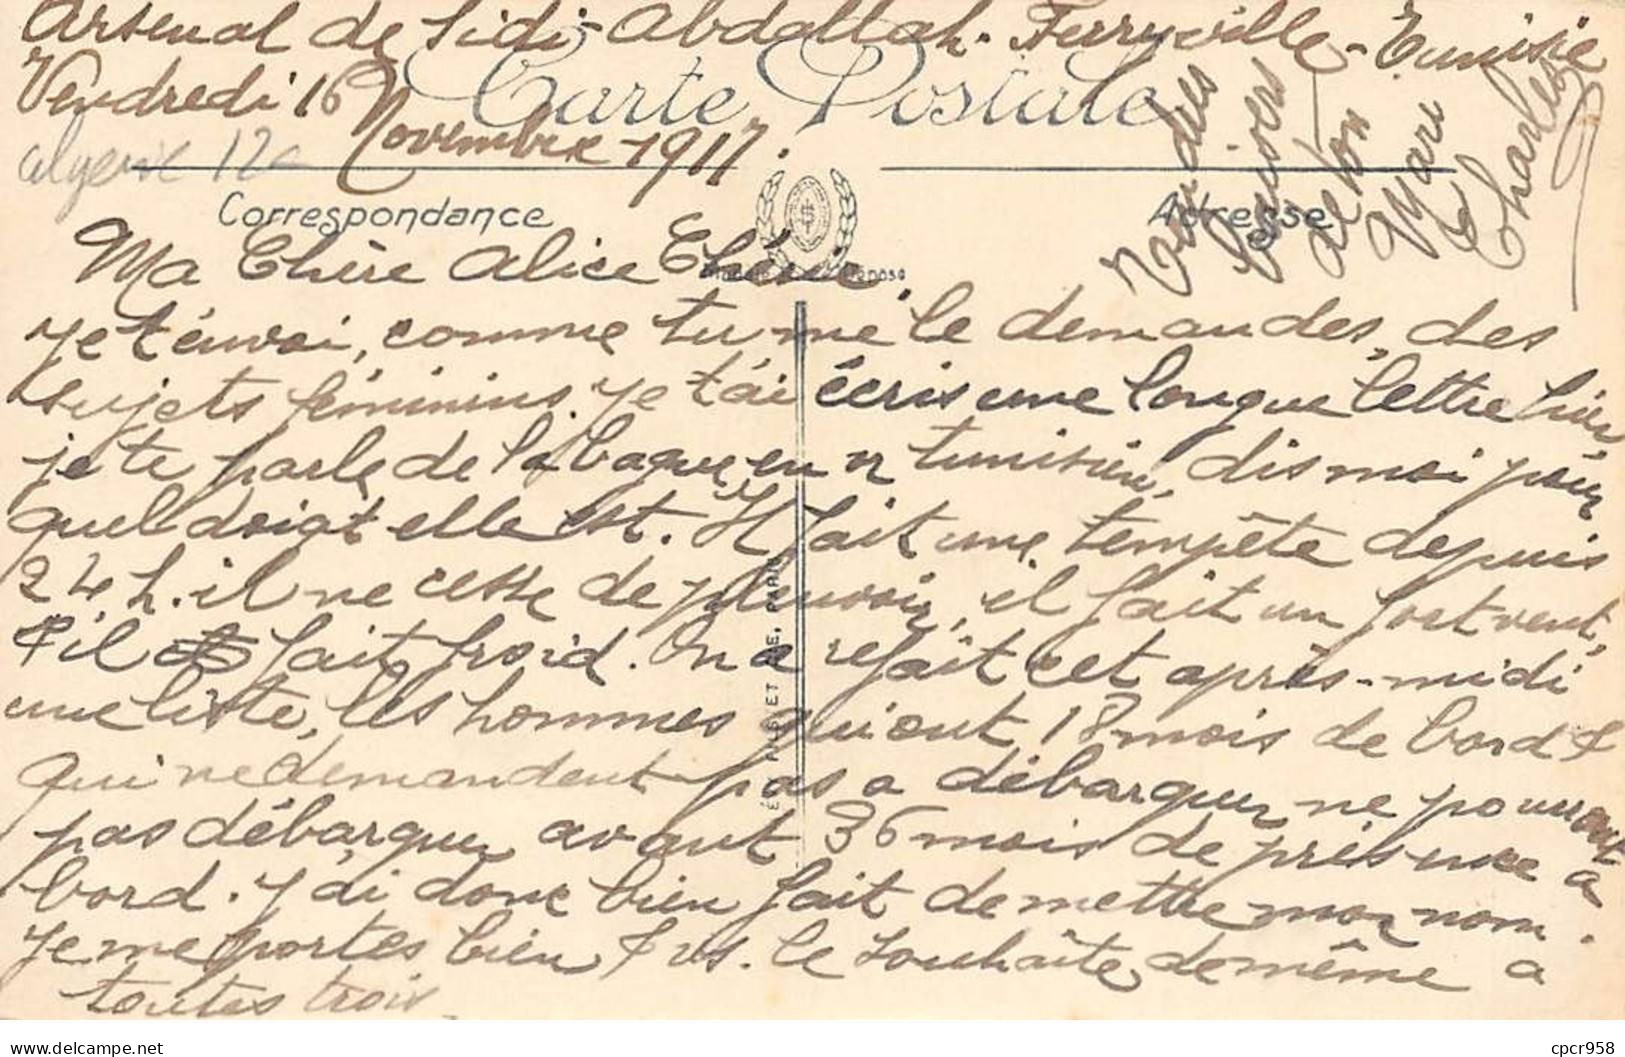 Arsenal de Sidi-Abdallah - Ferryville - Tunisie
Vendredi 16 Novembre 1917.
Carte Postale
algerie 12e
Correspondance
Adresse
Ma Chère Alice Chérie,
je t'envoi, comme tu me le demandes, des
sujets féminins. Je t'ai écris une longue lettre hier
je te parle de la bague en n tunisien, dis moi pour
quel doigt elle est. Il fait une tempête depuis
24 h. il ne cesse de pleuvoir, il fait un fort vent,
& il fait froid. On a refait cet après-midi
une liste, les hommes qui ont 18 mois de bord &
qui ne demandent pas a débarquer ne pourront
pas débarquer avant 36 mois de présence a
bord. J'ai donc bien fait de mettre mon nom.
Je me portes bien & vs. le souhaite de même a
toutes trois.
des
Baisers
de ton
Mari
Charles
ET FILS ET CIE, PARIS
cpcr958